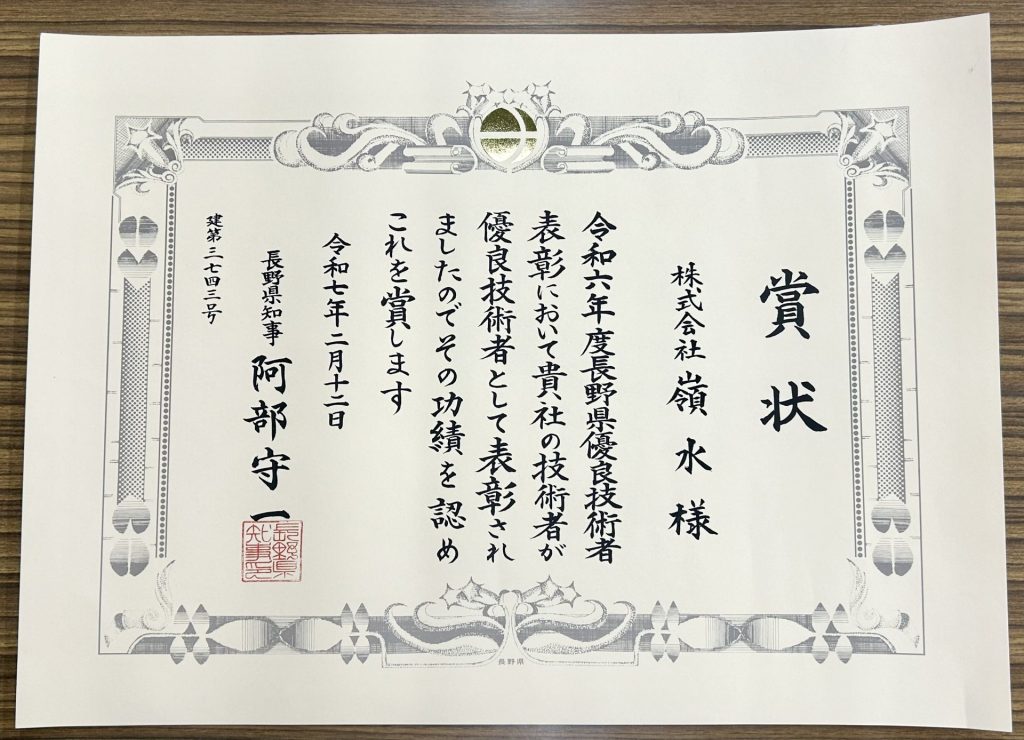 賞状
株式会社 嶺水 様
令和六年度長野県優良技術者
表彰において貴社の技術者が
優良技術者として表彰され
ましたのでその功績を認め
これを賞します
令和七年二月十二日
長野県知事 阿部守一
長野県
知事之印
建第三七四三号
長野県